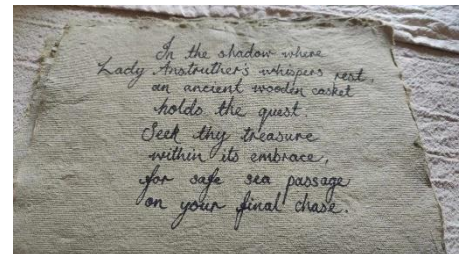 In the shadow where
Lady Anstruther's whispers rest,
an ancient wooden casket
holds the quest.
Seek thy treasure
within its embrace,
for safe sea passage
on your final chase.